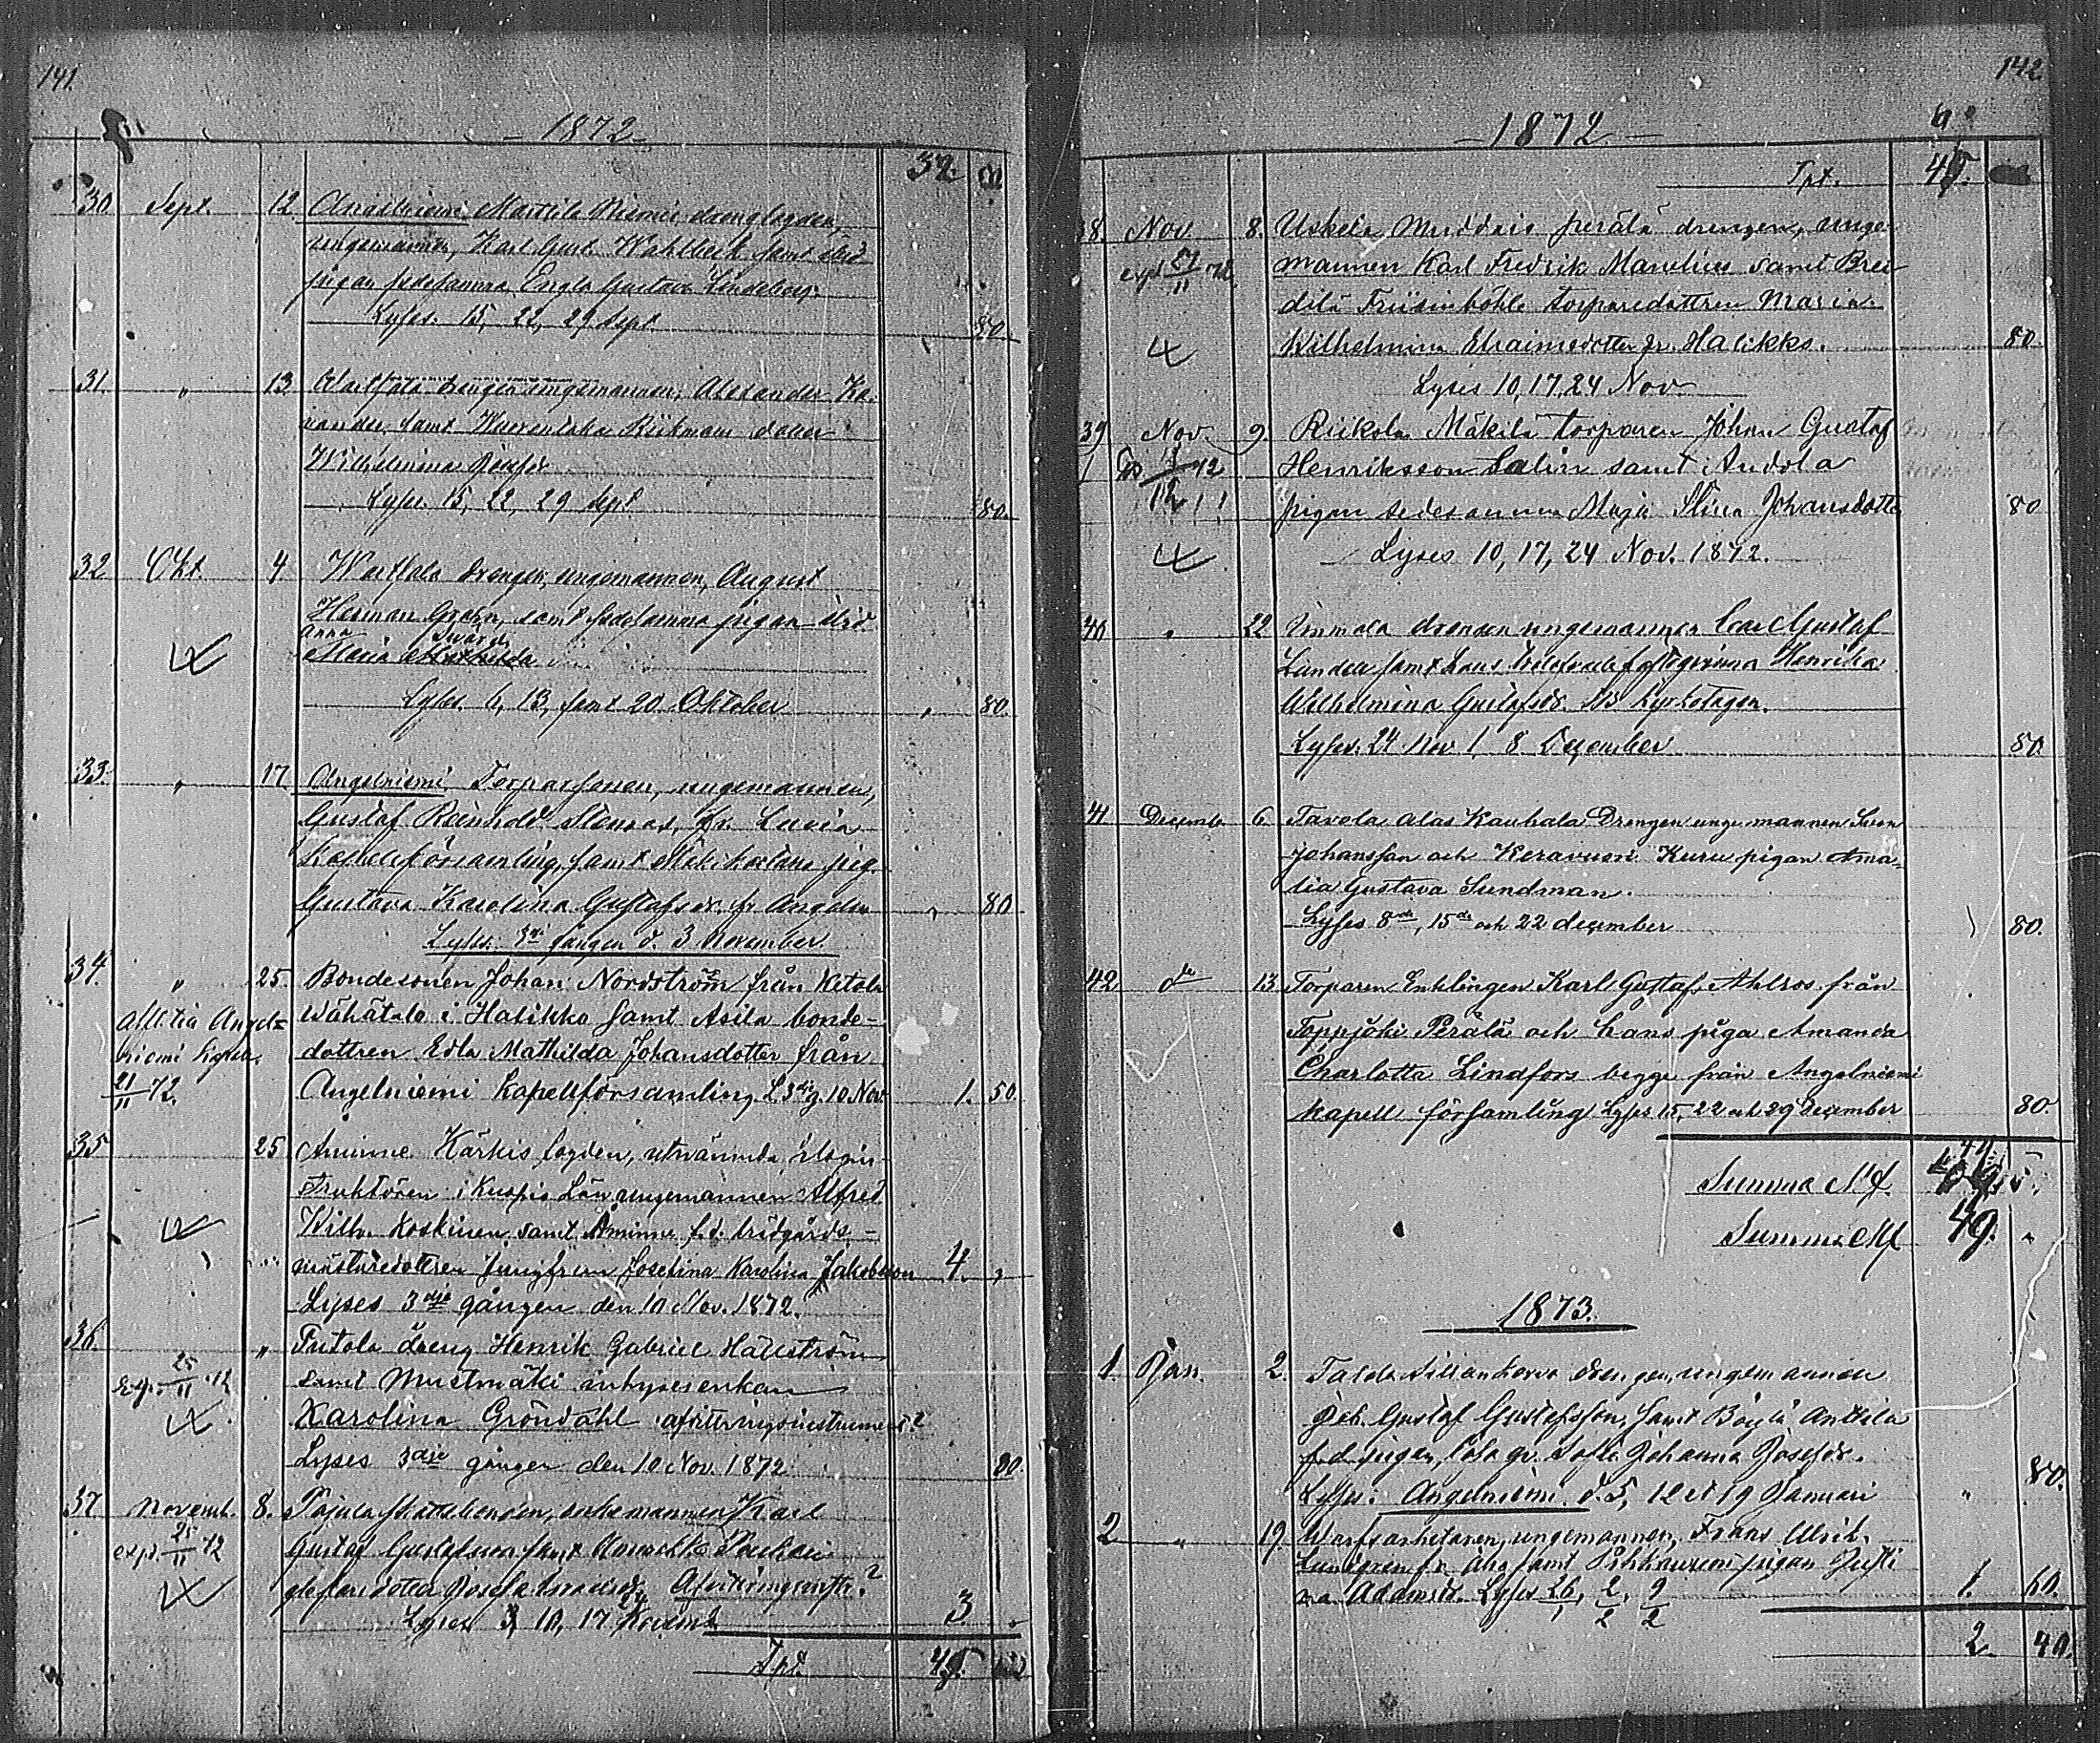 141.
— 1872 —
32.
30 Sept. 12 Angelniemi Marttila Niemi drenglegden,
ungemannen, Karl Gust. Wahlbeck samt
pigan sedesamma Engla Gustava Lindeberg.
Lyses. 15, 22, 29 Sept. 80.
31. " 13. drengen ungemannen, Alexander Ka-
nander, samt Wuorentaka
Wilhelmina
Lyses. 15, 22, 29 Sept 80.
32 Okt. 4 Wartsala drengen, ungemannen, August
Herman Green, samt sedesamma pigan
Anna Swärd
Maria Mathilda
Lyses. 6, 13, samt 20. Oktober " 80.
33. " 17 Angelniemi Torparsonen, ungemannen,
Gustaf Reinhold Stenros, fr.
Kapellförsamling, samt pig.
Gustava Karolina Gustafsdr. fr. Angeln " 80
Lyses. 3di gången d. 3 November.
34. " 25. Bondesonen Johan Nordström från Ketola
Attest à Angel= Wähätalo i Halikko samt Asila bonde-
niemi dottren Edla Mathilda Johansdotter från
21/11 72. Angelniemi Kapellförsamling L 3die g. 10 Nov 1. 50.
35 25. Åminne Kärkis logden, utnämnda
i Kuopio Län ungemannen Alfred
Wilh. Koskinen samt Åminne f.d. trädgårds-
mästaredottren Jungfrun Josefina Karolina Jakobsson 4. "
Lyses 3dje gången den 10 Nov. 1872.
36. " Tutola dreng Henrik Gabriel Hällström
exp. 25/11 72 samt Mustmäki inhysesenkan
Karolina Gröndahl afvittringsinstrument?
Lyses 3dje gången den 10 Nov. 1872 80.
37 Novemb. 8. Pajula Skattebonden, enkemannen Karl
exp. 25/11 72 Gustaf Gustafsson samt
dotter Josefa Afvittringsinstr.?
Lyses 3, 10, 17 24 Novemb. 3. "
Tpt. 45.
142.
— 1872. —
Tpt. 45.
38. Nov. 8. Uskela Muddais perälä drengen, unge
exp 27/11 72. mannen Karl Fredrik Manelius samt Brei
dilä Friisinböhle torparedottren Maria
Wilhelmina Efraimsdotter fr. Halikko. 80
Lyses 10, 17, 24 Nov
39 Nov. 9. Riikola Mäkilä torparen Johan Gustaf
Henriksson Salin samt Andola
pigan sedesamma Maja Stina Johansdotter 80
Lyses 10, 17, 24 Nov. 1872.
40 " 22 Immala drengen ungemannen Carl Gustaf
Lunden samt hans Henrika
Wilhelmina Gustafsdr. kyrkotagen.
Lyses. 24 Nov 1, 8 December 80.
41 Decemb. 6. Tavola Alas Kauhala Drengen unge mannen Sven
Johansson och Keravuori Kuru pigan Ama=
lia Gustava Sundman.
Lyses 8de, 15de och 22 december 80.
42 do 13. Torparen Enklingen Karl Gustaf Ahlros från
Toppjoki Perälä och hans piga Amanda
Charlotta Lindfors begge från Angelniemi
kapell församling Lyses 15, 22 och 29 December 80.
Summa
Summa 49. "
1873.
1. Jan. 2. drengen, ungemannen
Joh. Gustaf Gustafsson, samt Böylä Anttila
f.d. pigan, Sofia Johanna Josefsdr. 80.
Lyses i Angelniemi d. 5, 12 et 19 Januari "
2 " 19. Warfsarbetaren, ungemannen, Frans Ulrik
Lundgren fr. Åbo samt pigan Justi
na Adamsd. Lyses 26/1, 2/2, 9/2 1. 60.
2. 40.